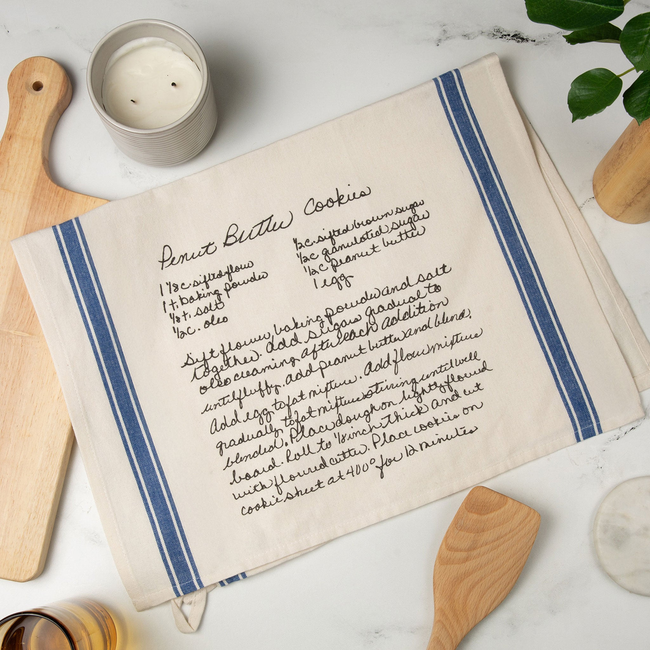 Penut Butter Cookies
1 1/8 c sifted flow
1 t. baking powder
1/8 t. salt
1/2 c. oleo
1/2 c sifted brown sugar
1/2 c granulated sugar
1/2 c peanut butter
1 egg
Sift flour, baking powder and salt
together. Add sugar gradual to
oleo creaming after each addition
until fluffy. add peanut butter and blend.
Add egg to fat mixture. Add flow mixture
gradually to fat mixture stirring until well
blended. Place dough on lightly floured
board. Roll to 1/8 inch thick and cut
with floured cutter. Place cookies on
cookie sheet at 400° for 12 minutes